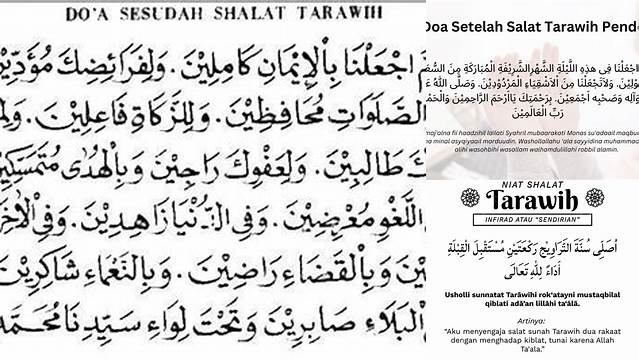 DO'A SESUDAH SHALAT TARAWIH
اجْعَلْنَا بِالْإِيْمَانِ كَامِلِيْنَ. وَلِفَرَائِضِكَ مُؤَدِّيْنَ
الصَّلَوَاتِ مُحَافِظِيْنَ. وَلِلزَّكَاةِ فَاعِلِيْنَ.
طَالِبِيْنَ. وَلِعَفْوِكَ رَاجِيْنَ وَبِالْهُدَى مُتَمَسِّكِيْنَ
اللَّغْوِ مُعْرِضِيْنَ. وَفِي الدُّنْيَا زَاهِدِيْنَ. وَفِي
وَبِالْقَضَاءِ رَاضِيْنَ. وَبِالنَّعْمَاءِ شَاكِرِيْنَ
الْبَلَاءِ صَابِرِيْنَ وَتَحْتَ لِوَاءِ سَيِّدِنَا مُحَمَّدٍ
Doa Setelah Salat Tarawih
فِي هٰذِهِ اللَّيْلَةِ الشَّهْرِالشَّرِيْفَةِ الْمُبَارَكَةِ مِنَ
وَلَاتَجْعَلْنَا مِنَ الْأَشْقِيَاءِ الْمَرْدُوْدِيْنَ. وَصَلَّى اللهُ
وَآلِهِ وَصَحْبِهِ أَجْمَعِيْنَ. بِرَحْمَتِكَ يَاأَرْحَمَ الرَّاحِمِيْنَ
رَبِّ الْعَالَمِيْنَ
fii haadzihil lailati Syahril mubaarakati Monas su'adaail
minal asyqiyaail marduudin. Washollallahu 'ala sayyidina
alihi wasohbihi wasallam walhamdulillahi robbil alamin.
NIAT SHALAT
Tarawih
INFIRAD ATAU “SENDIRIAN”
اُصَلِّى سُنَّةَ التَّرَاوِيْحِ رَكْعَتَيْنِ مُسْتَقْبِلَ الْقِبْلَةِ
اَدَاءً لِلّٰهِ تَعَالَى
Usholli sunnatat Tarāwīhi rok‘atayni mustaqbilal
qiblati adā’an lillāhi ta‘ālā.
Artinya:
“Aku menyengaja salat sunah Tarawih dua rakaat
dengan menghadap kiblat, tunai karena Allah
Ta’ala.”